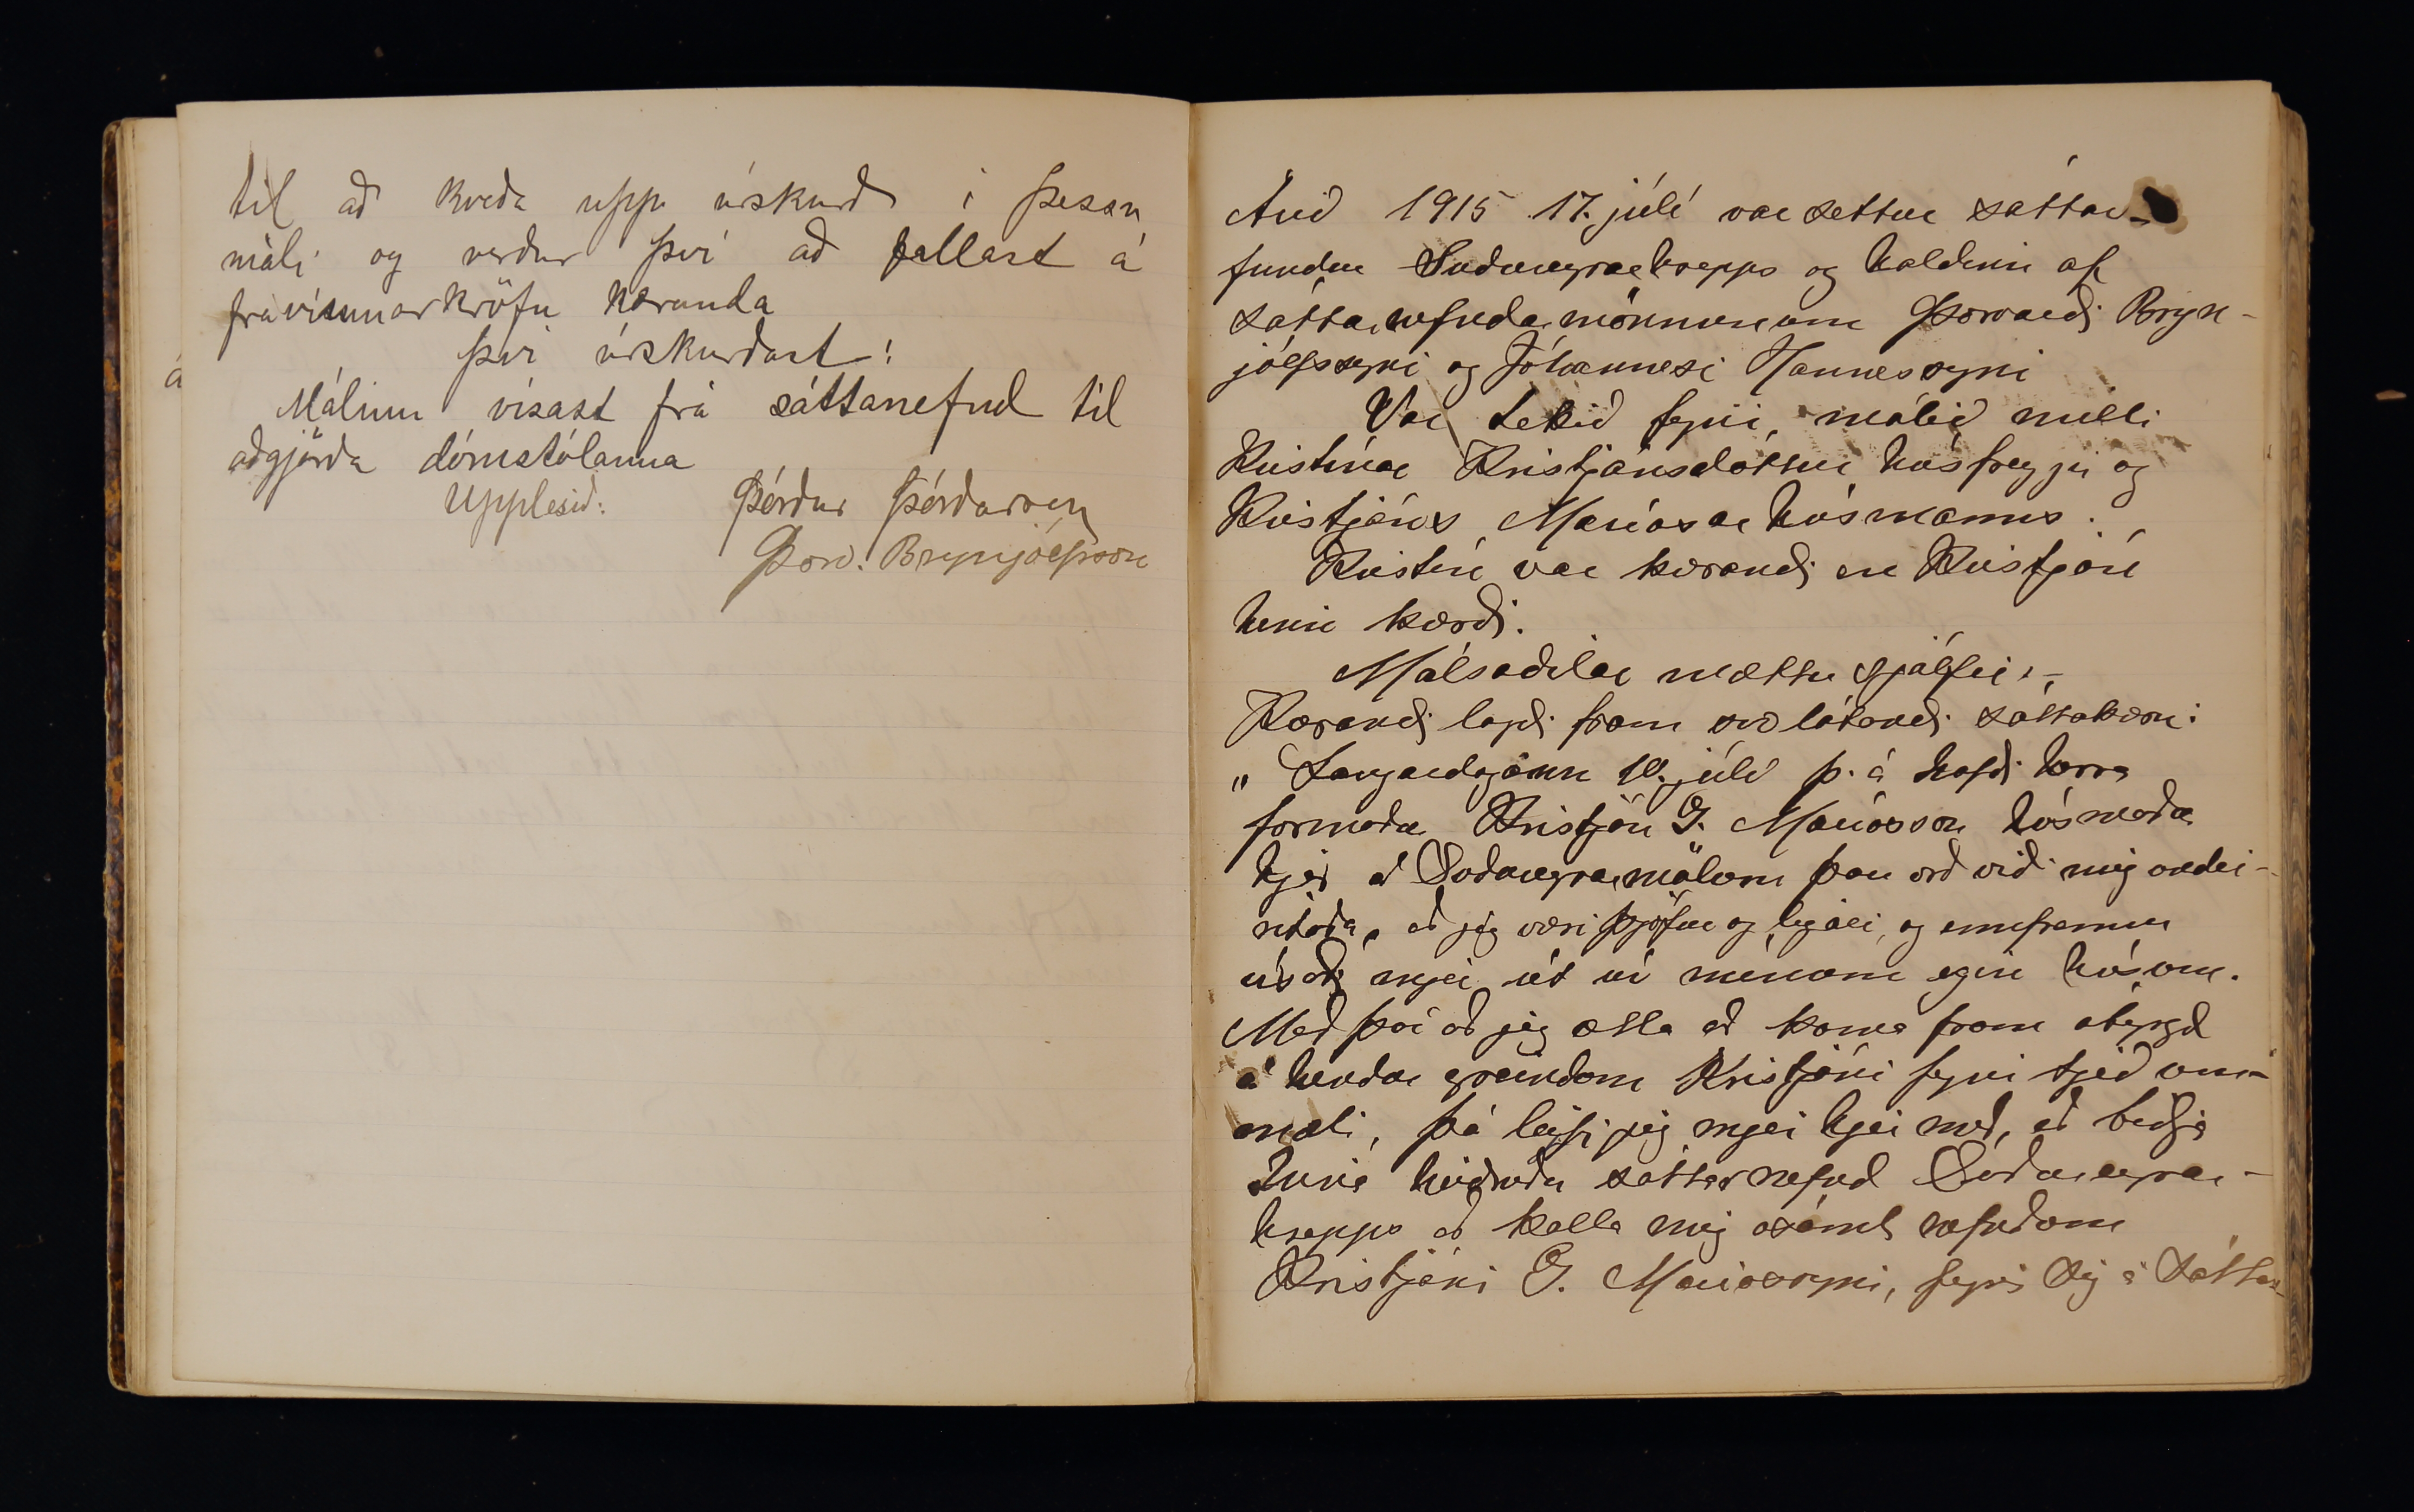 til að kveða upp úrskurð í þessu
máli og verður því að fallast á
frávísunarkröfu kæranda
Því úrskurðast:
Málinu vísast frá sáttanefnd til
aðgjörða dómstólanna
Upplesið. Þórður Þórðarson
Þorv. Brynjólfsson
á
Árið 1915 17. júlí var settur sáttar-
fundur Suðureyrarhrepps og haldinn af
sáttarnefndarmönnunum Þorvarði Bryn-
jólfssyni og Jóhannesi Hannessyni
Var tekið fyrir málið milli
Kristínar Kristjánsdóttur húsfreyju og
Kristjáns Maríasar húsmanns.
Kristín var kærandi en Kristján
hinn kærði.
Málsaðilar mættu sjálfir.-
Kærandi lagði fram svo látandi sáttakæru:
„ Laugardaginn 10. júlí þ. á hafði herra
formaður Kristján G. Maríasson húsmaður
hjer á Suðureyrarmölum þau orð við mig ófrei-
ntöða, að jeg væri þjófur og lygari, og ennfremur
vísaði mjer út úr mínum eigin húsum.
Með því að jeg ætla að koma fram ábyrgð
á hendur greindum Kristjáni fyrir tjeð um-
mæli, þá leyfi jeg mjer hjer með, að biðja
hina heiðruðu sáttarnefnd Suðureyrar-
hrepps að kalla mig ásamt nefndum
Kristjáni G. Maríassyni, fyrir sig á sáttar-